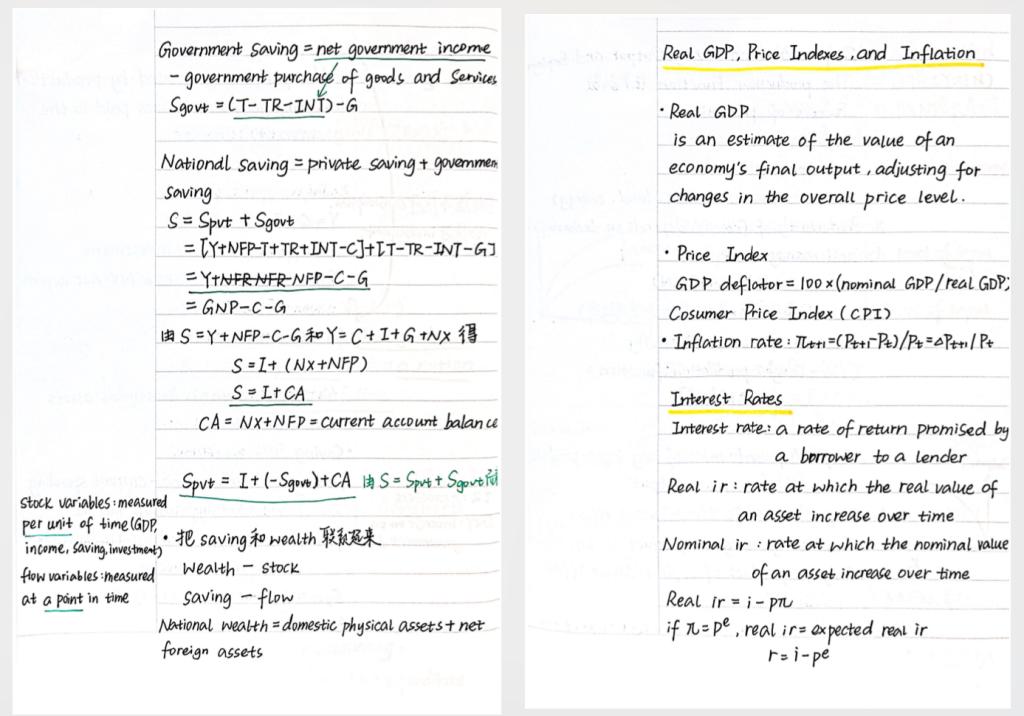 Government Saving = net government income
- government purchase of goods and Services
Sgovt = (T-TR-INT)-G
National saving = private saving + governmen
saving
S = Spvt + Sgovt
= [Y+NFP-T+TR+INT-C]+[T-TR-INT-G]
= Y+NFR-NFR-NFP-C-G
= GNP-C-G
由 S=Y+NFP-C-G和Y=C+I+G+NX 得
S=I+(NX+NFP)
S=I+CA
CA = NX+NFP=current account balance
Spvt = I+(-Sgovt)+CA 由 S=Spvt+Sgovt得
stock variables:measured
per unit of time(GDP,
income, saving,investment)
flow variables:measured
at a point in time
· 把 saving和 wealth 联系起来
wealth - stock
saving - flow
National wealth=domestic physical assets+net
foreign assets
Real GDP, Price Indexes, and Inflation
· Real GDP
is an estimate of the value of an
economy's final output, adjusting for
changes in the overall price level.
· Price Index
GDP deflator = 100×(nominal GDP/real GDP)
Cosumer Price Index (CPI)
· Inflation rate: πt+1=(Pt+1-Pt)/Pt=△Pt+1/Pt
Interest Rates
Interest rate: a rate of return promised by
a borrower to a lender
Real ir: rate at which the real value of
an asset increase over time
Nominal ir: rate at which the nominal value
of an asset increase over time
Real ir = i-pπ
if π=pᵉ, real ir=expected real ir
r=i-pᵉ